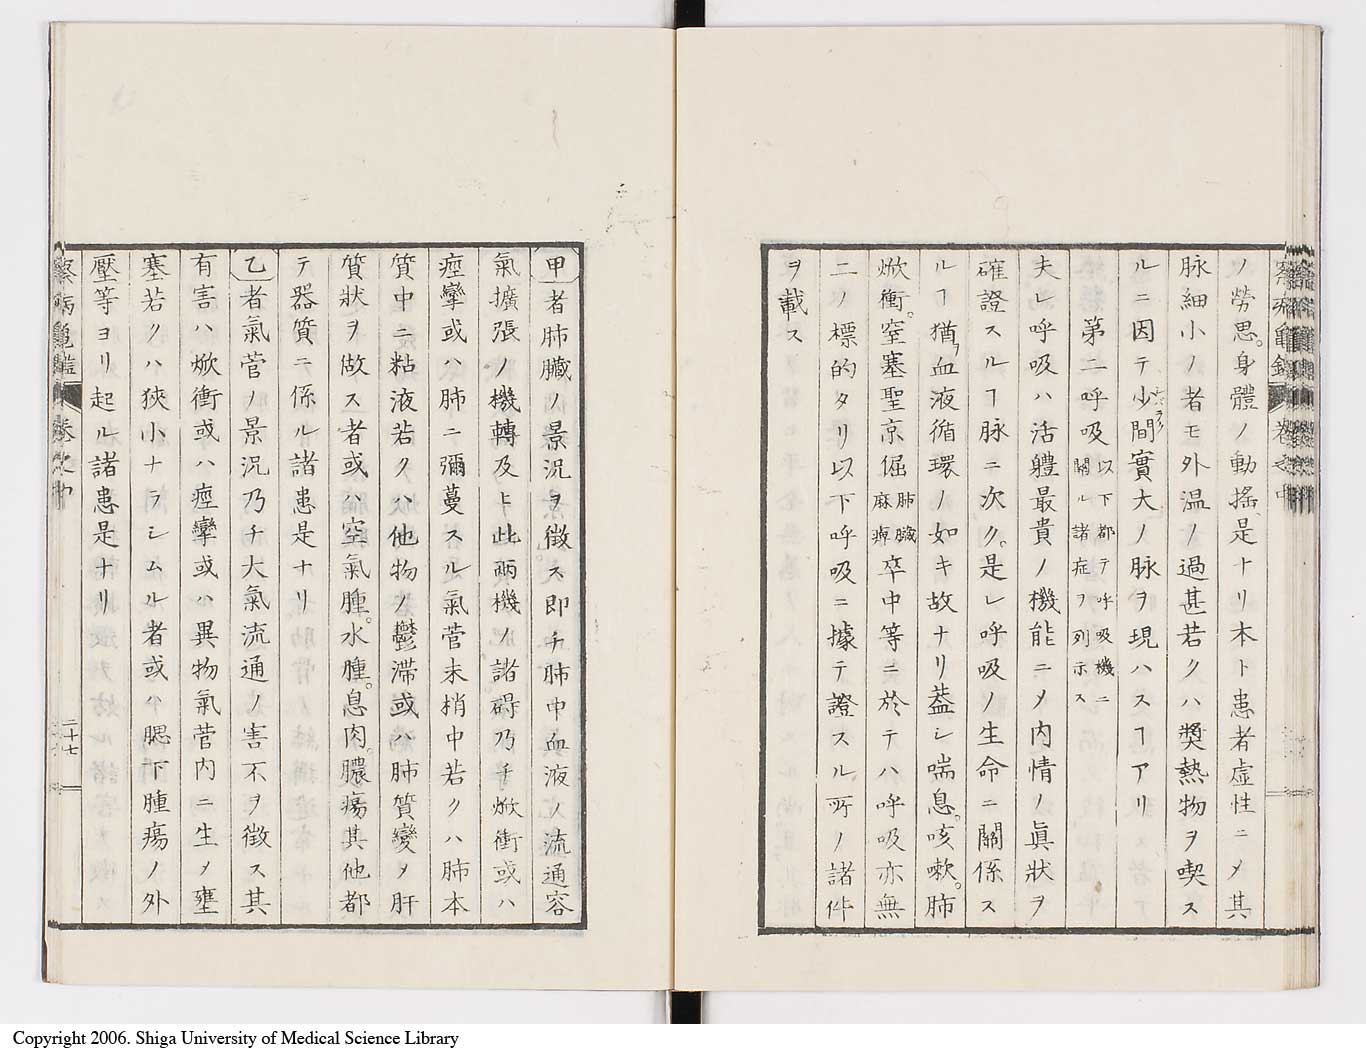 ノ勞思。身體ノ動搖、是ナリ本ト患者虚性ニメ其
脉細小ノ者モ外温ノ過甚若クハ奬熱物ヲ喫ス
ルニ因テ少間實大ノ脉ヲ現ハスヿアリ
第二呼吸 以下都テ呼吸機ニ關ル諸症ヲ列示ス
夫レ呼吸ハ活軆最貴ノ機能ニメ内情ノ眞狀ヲ
確證スルヿ脉ニ次ク。是レ呼吸ノ生命ニ關係ス
ルヿ猶ヲ血液循環ノ如キ故ナリ葢シ喘息。咳嗽。肺
焮衝。窒塞聖京倔 肺臓麻痺 卒中等ニ於テハ呼吸亦無
二ノ標的タリ以下呼吸ニ據テ證スル所ノ諸件
ヲ載ス
甲者肺臓ノ景況ヲ徴ス即チ肺中血液ノ流通容
氣擴張ノ機轉及ヒ此兩機ノ諸碍乃チ焮衝或ハ
痙攣或ハ肺ニ彌蔓スル氣管末梢中若クハ肺本
質中ニ粘液若クハ他物ノ鬱滞或ハ肺質變メ肝
質狀ヲ做ス者或ハ空氣腫。水腫。息肉。膿瘍其他都
テ器質ニ係ル諸患是ナリ
乙者氣管ノ景況乃チ大氣流通ノ害不ヲ徴ス其
有害ハ焮衝或ハ痙攣或ハ異物氣管内ニ生メ壅
塞若クハ狹小ナラシムル者或ハ腮下腫瘍ノ外
壓等ヨリ起ル諸患是ナリ
察病亀鑑 卷之中
二十七
Copyright 2006. Shiga University of Medical Science Library